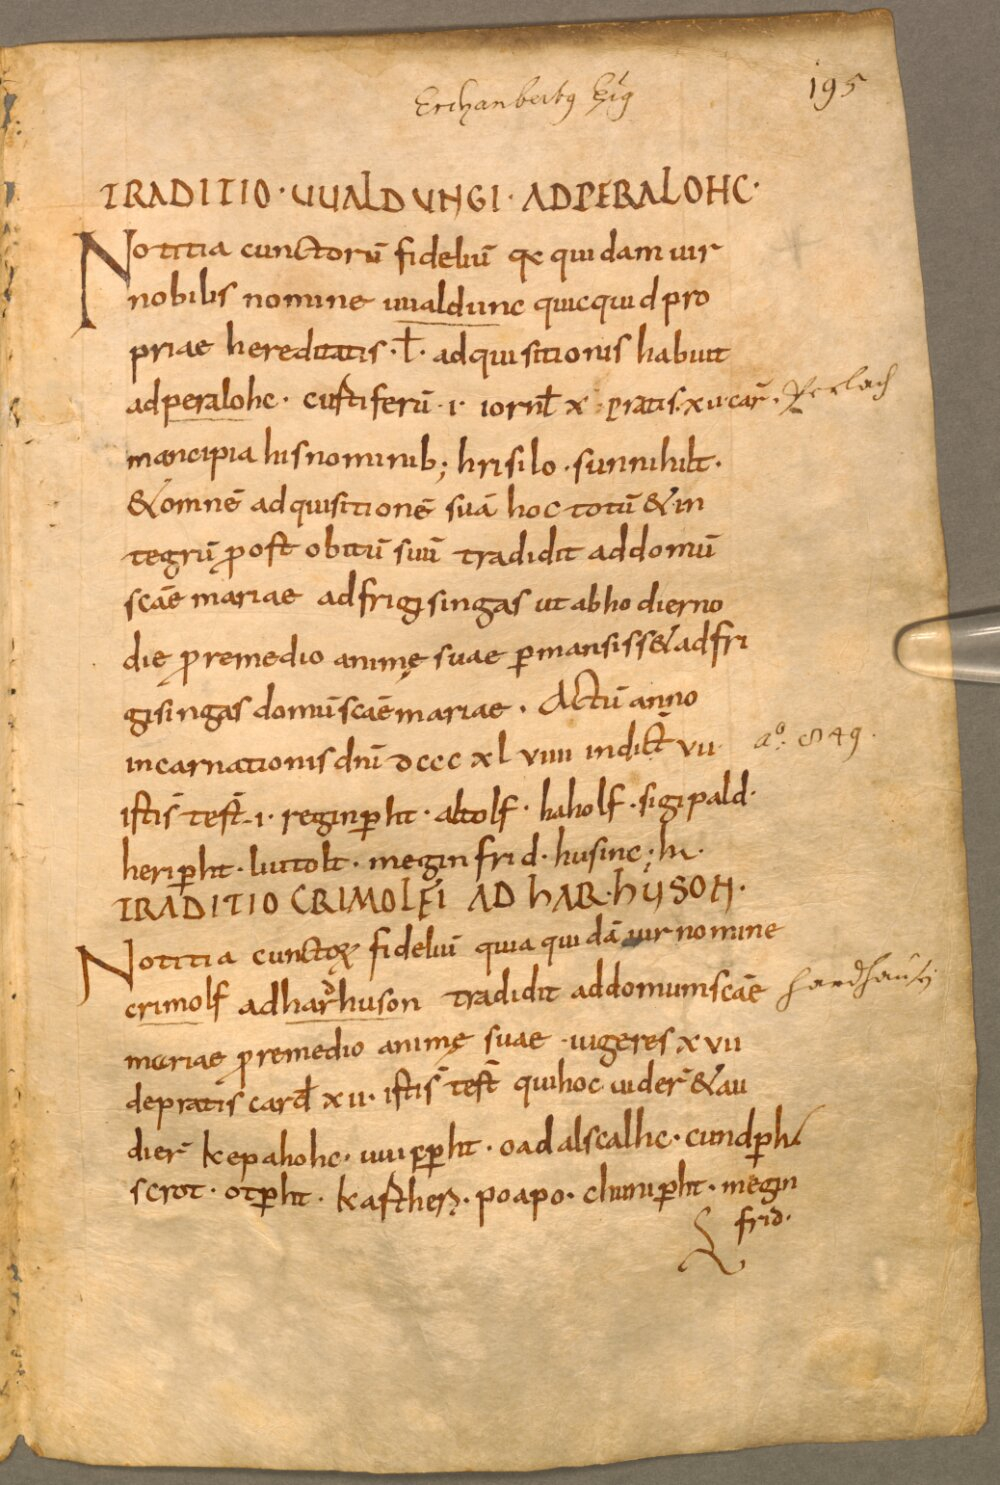 Erchanbertꝰ Ep̄s
195
TRADITIO · UUALDUNGI · ADPERALOHC ·
Notitia cunctorū fideliū qꝫ quidam uir
nobilis nomine uualdunc quicquid pro
priae hereditatis · ł · adquisitionis habuit
adperalohc · custiferū · i · iornł x · pratis · xii · car̄ · Perlach
mancipia hisnominib; hrisilo · sunnihilt ·
&omnē adquisitionē suā hoc totū &in
tegrū post obitū suū tradidit addomū
scāe mariae adfrigisingas ut abhodierno
die ꝓremedio animę suae ꝑmansiss& adfri
gisingas domūscāe mariae · Actū anno
incarnationis dn̄i dccc xl viiii indict̄ vii · aº. 849.
istis̄ test̄ · i · reginꝑht · altolf · haholf · sigipald ·
heriꝑht · liutolt · meginfrid · husinc ; hr ·
TRADITIO CRIMOLFI AD HAR·HUSON ·
Notitia cunctoꝝ fideliū quia quidā uir nomine
crimolf adhardhuson tradidit addomumscāe hardhausen
mariae ꝓremedio animę suae · iugeres xvii
depratis card̄ xii · istis̄ test̄ quihoc uider̄ &au
dier̄ kepahohc · uuiꝑꝑht · oadalscalhc · cundꝑht
scrot · otꝑht · kastheri · poapo · chuniꝑht · megin
frid ·